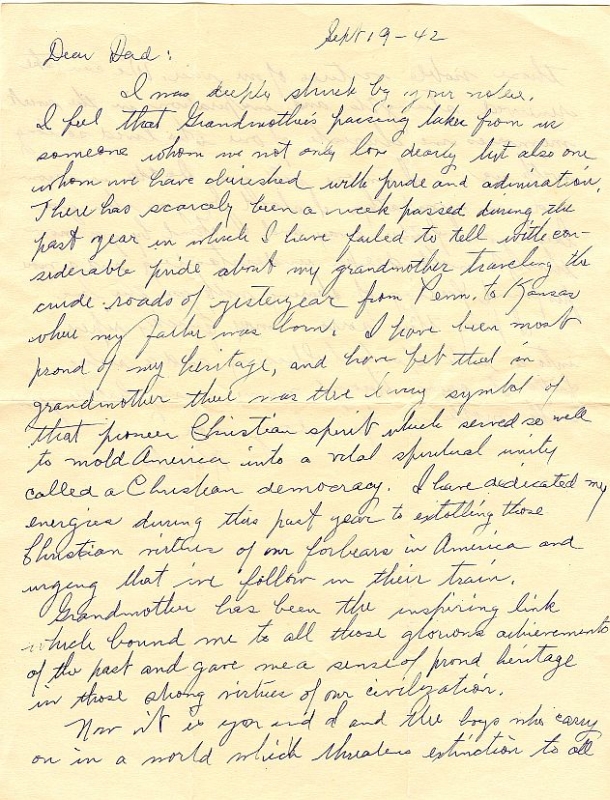 Sept 19-42
Dear Dad:
I was deeply struck by your notes.
I feel that Grandmother's passing takes from us
someone whom we not only love dearly but also one
whom we have cherished with pride and admiration.
There has scarcely been a week passed during the
past year in which I have failed to tell with con-
siderable pride about my grandmother traveling the
crude roads of yesteryear from Penn. to Kansas
where my father was born. I have been most
proud of my heritage, and have felt that in
grandmother there was the living symbol of
that pioneer Christian spirit which served so well
to mold America into a vital spiritual unity
called a Christian democracy. I have dedicated my
energies during this past year to extolling those
Christian virtues of our forbears in America and
urging that we follow in their train.
Grandmother has been the inspiring link
which bound me to all those glorious achievements
of the past and gave me a sense of proud heritage
in those strong virtues of our civilization.
Now it is you and I and the boys who carry
on in a world which threatens extinction to all